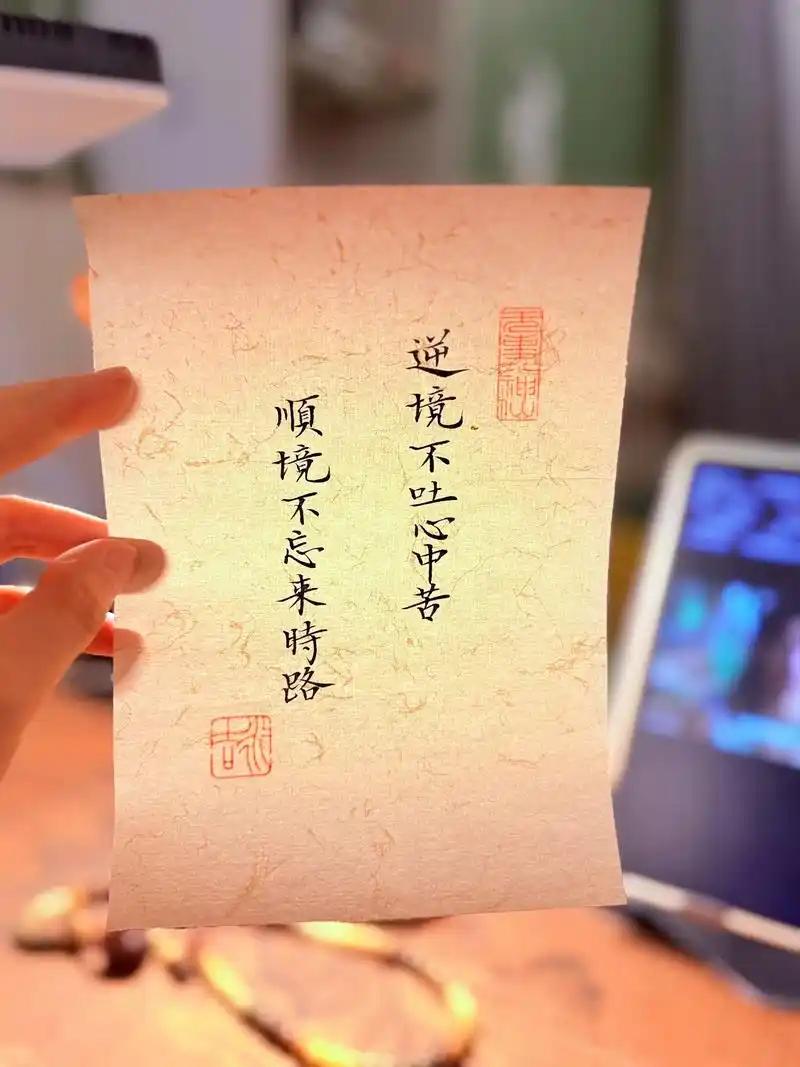 逆境不吐心中苦
順境不忘来時路